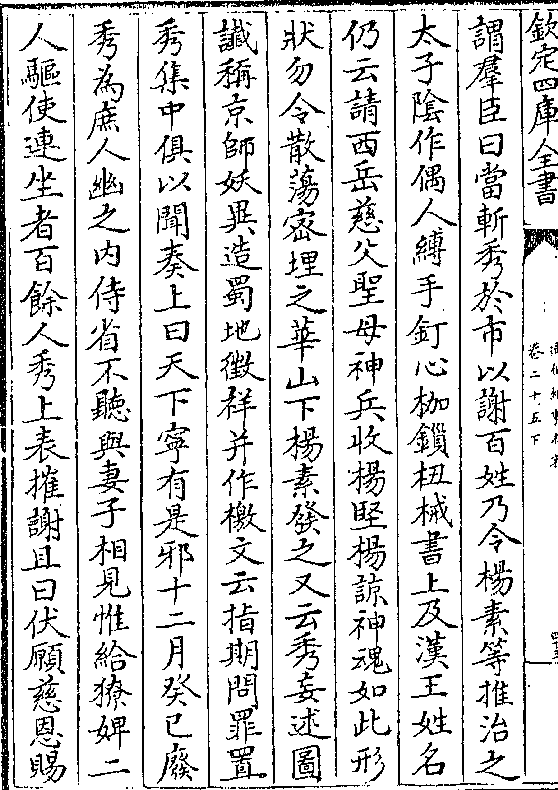 欽定四庫全書
卷二十五下
謂羣臣曰當斬秀於市以謝百姓乃令楊素等推治之
太子陰作偶人縛手釘心枷鎖杻械書上及漢王姓名
仍云請西岳慈父聖母神兵收楊堅楊諒神魂如此形
狀勿令散蕩密埋之華山下楊素發之又云秀妄述圖
讖稱京師妖異造蜀地徵祥并作檄文云指期問罪置
秀集中俱以聞奏上曰天下寧有是邪十二月癸巳廢
秀為庶人幽之内侍省不聽與妻子相見惟給獠婢二
人驅使連坐者百餘人秀上表摧謝且曰伏願慈恩賜